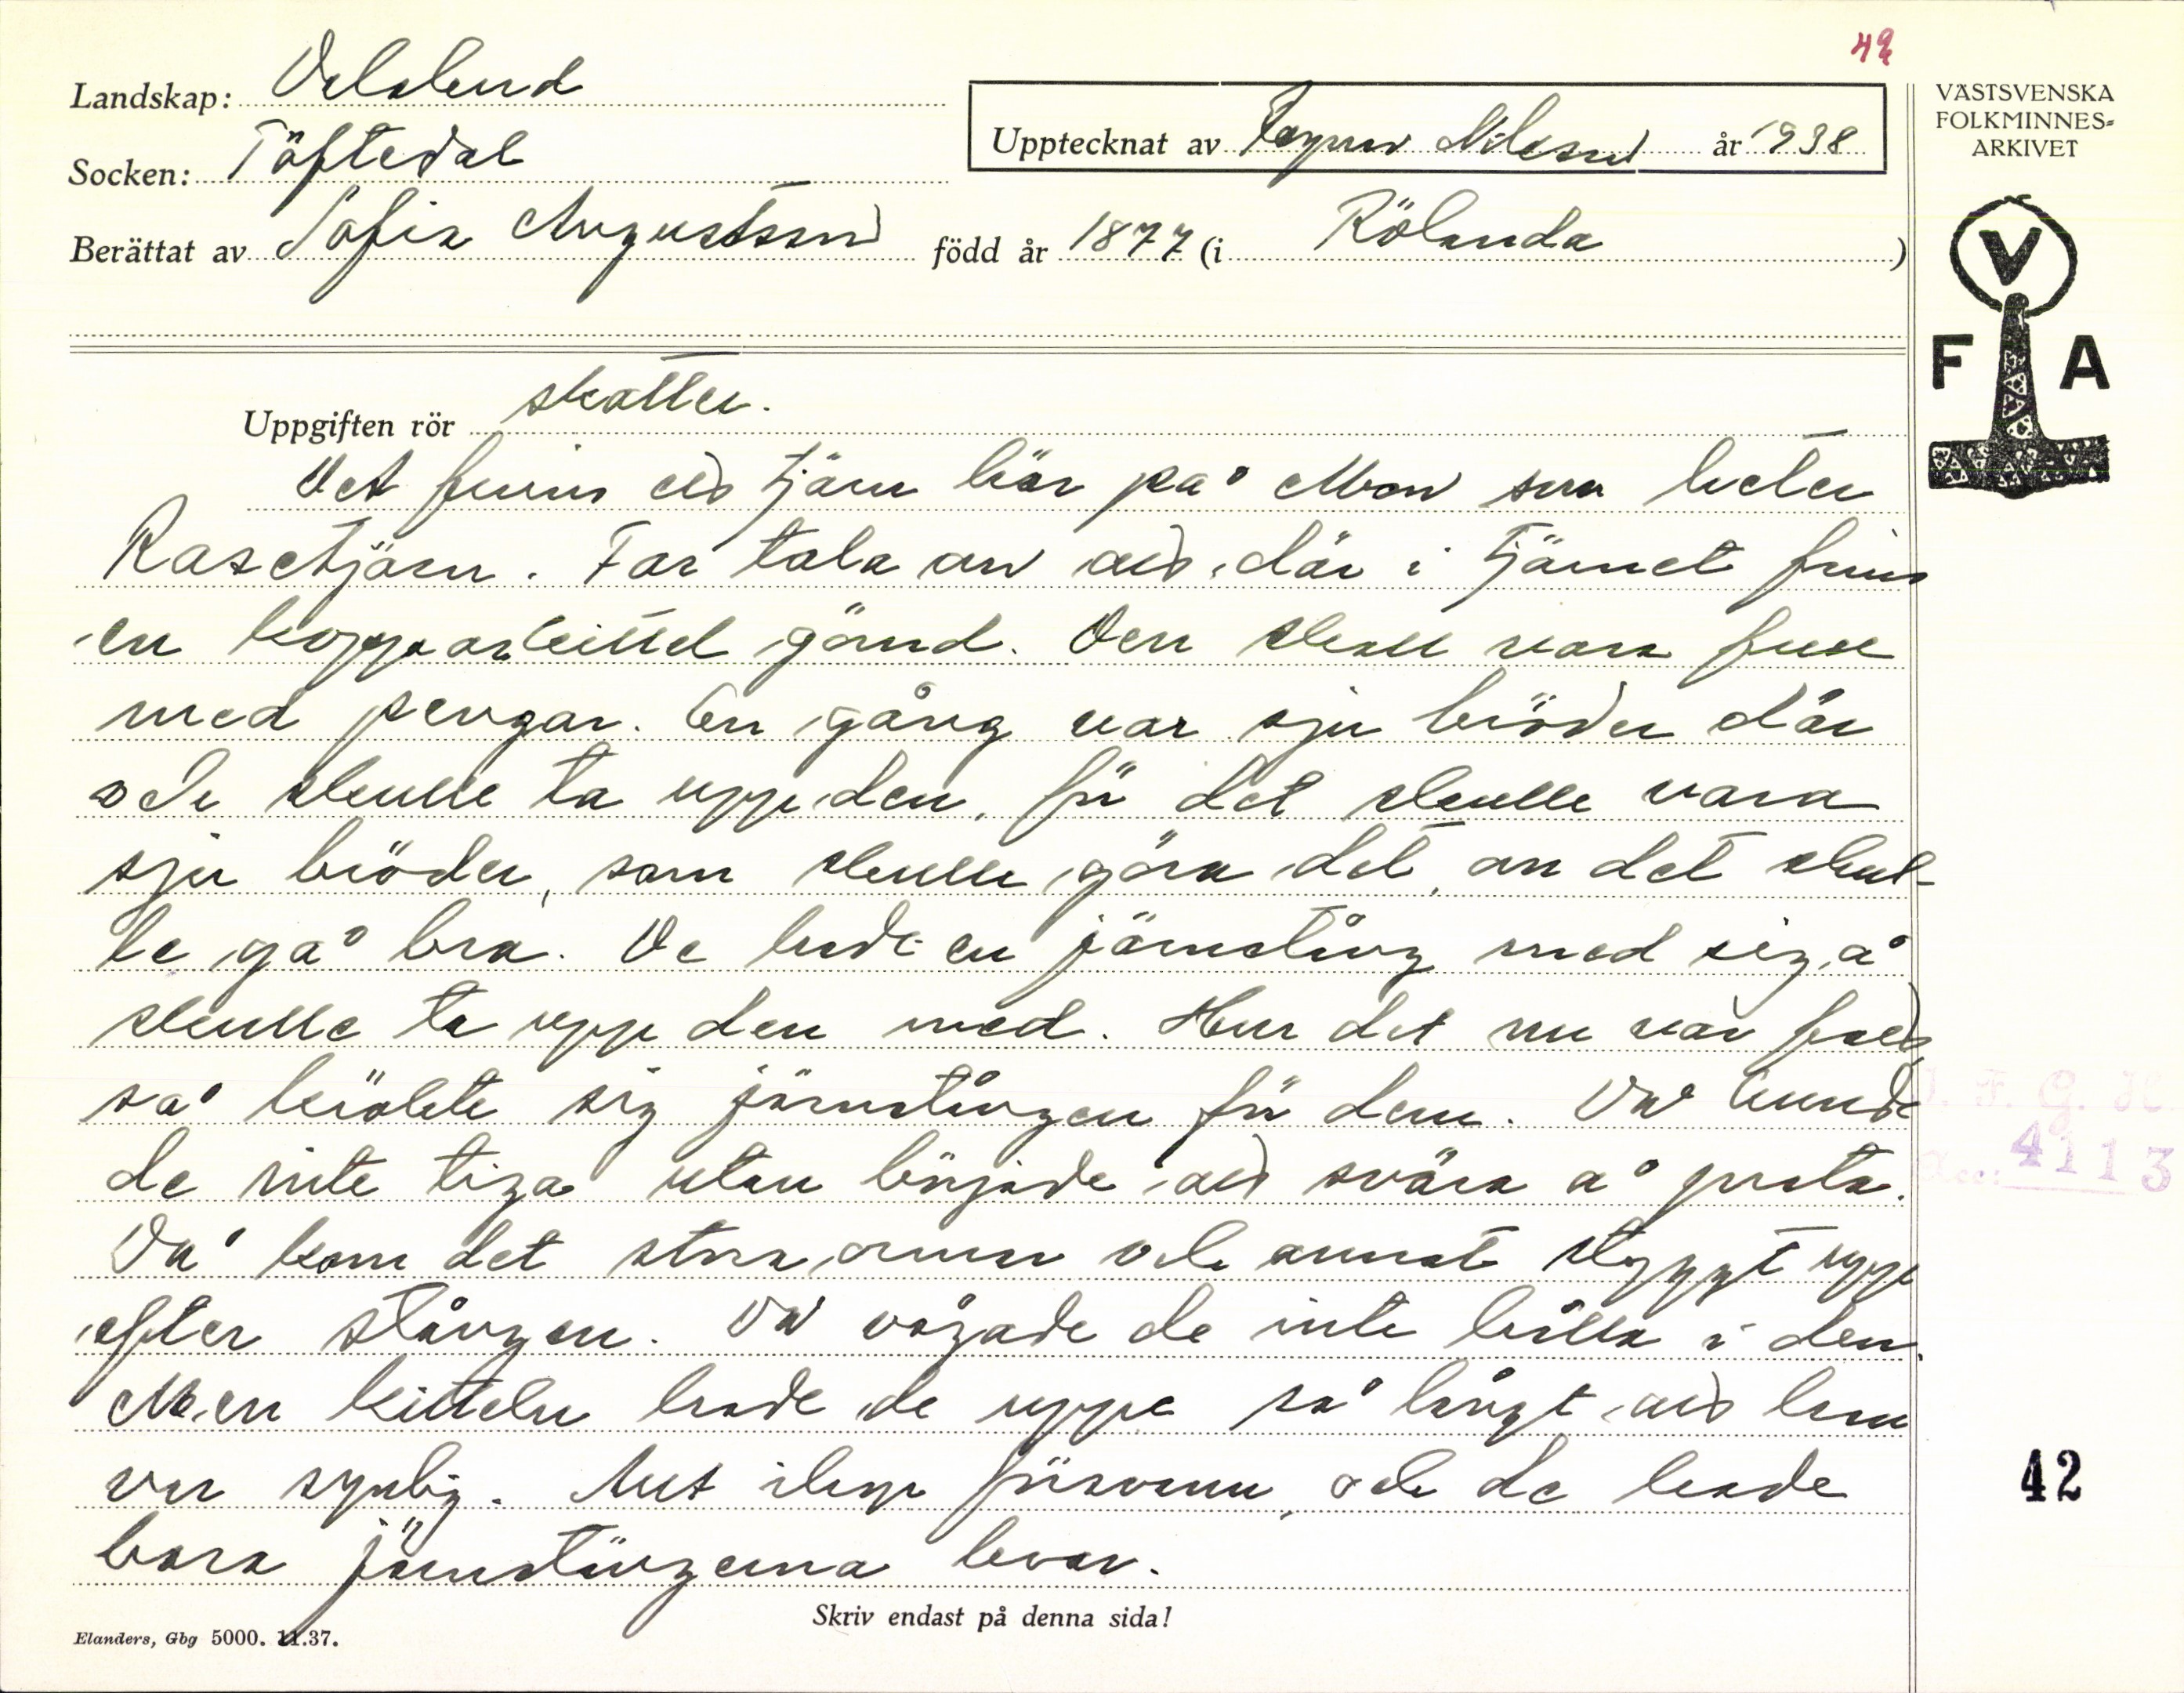 42
Landskap: Dalsland
Socken: Töftedal
Upptecknat av Ragnar Nilsson år 1938
Berättat av Sofia Augustsson född år 1877 (i Rölanda )
VÄSTSVENSKA
FOLKMINNES-
ARKIVET
V
F A
Uppgiften rör skatter.
Det finns ett tjärn här på Mon som heter
Rasetjärn. Far tala om att där i tjärnet finns
en kopparkittel gömd. Den skall vara full
med pengar. En gång var sju bröder där
och skulle ta upp den, för det skulle vara
sju bröder, som skulle göra det, om det skul-
le gå bra. De hade en järnstång med sig å
skulle ta upp den med. Hur det nu var fatt
så krökte sig järnstången för dem. Då kunde
de inte tiga utan började att svära å prata.
Då kom det stora ormar och annat styggt upp
efter stången. Då vågade de inte hålla i den.
Men kitteln hade de uppe så långt att han
var synlig. Allt ihop försvann, och de hade
bara järnstängerna kvar.
I. F. G. H.
Acc: 4113
42
Skriv endast på denna sida!
Elanders, Gbg 5000. 11.37.